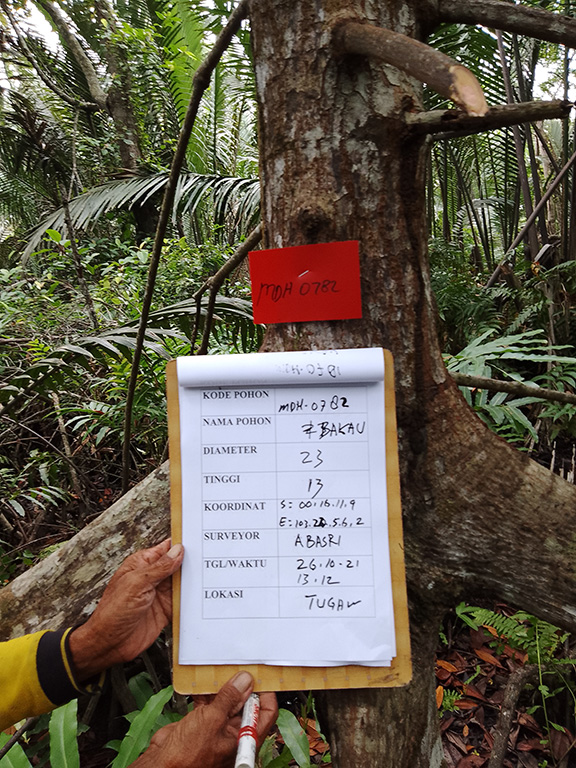 MDH 0782
MDH-0781
KODE POHON MDH-0782
NAMA POHON BAKAU
DIAMETER 23
TINGGI 13
KOORDINAT S=00.16.11.9
E=103.24.5.6,2
SURVEYOR ABASRI
TGL/WAKTU 26.10.21
13.12
LOKASI TUGAW